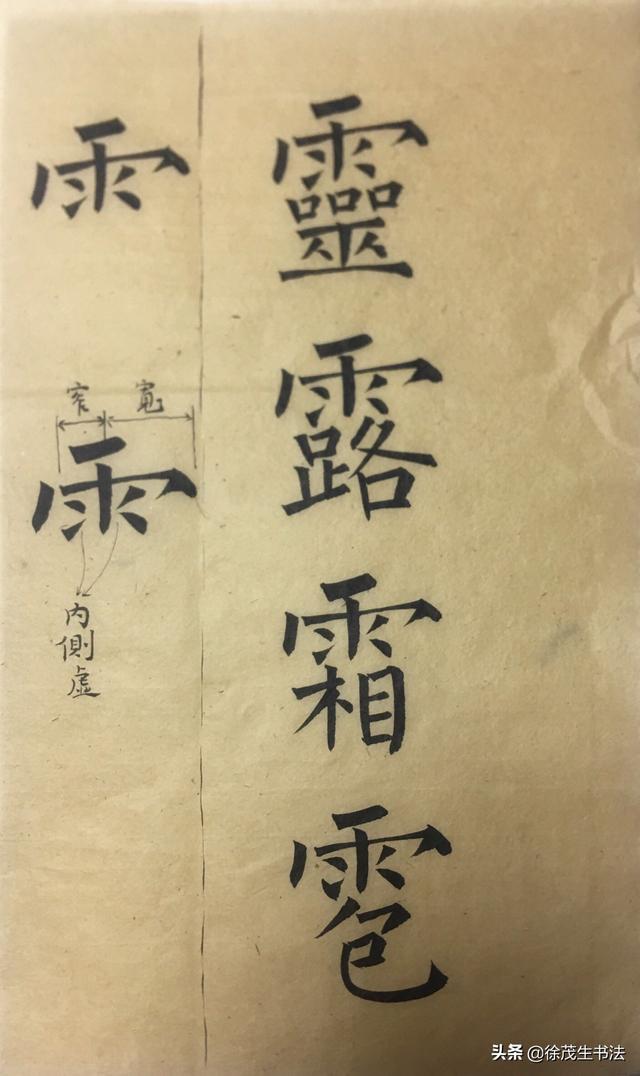 雨
窄 寬
雨
内側虛
靈
露
霜
雹
头条 @徐茂生书法